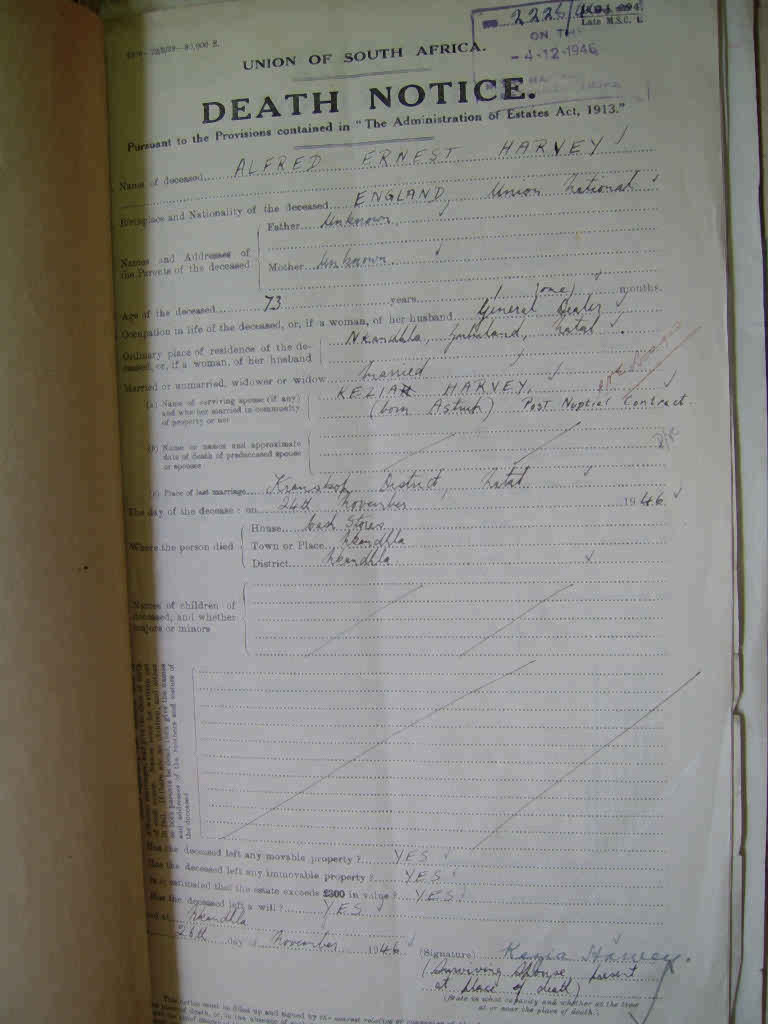 2225/
Late M.S.C.
ON
-4-12-1946
UNION OF SOUTH AFRICA.
DEATH NOTICE.
Pursuant to the Provisions contained in "The Administration of Estates Act, 1913."
Name of deceased ALFRED ERNEST HARVEY
Birthplace and Nationality of the deceased ENGLAND, Union National
Names and Addresses of the Parents of the deceased
Father Unknown
Mother Unknown
Age of the deceased 73 years 1 (one) months.
Occupation in life of the deceased, or, if a woman, of her husband General Dealer
Ordinary place of residence of the deceased, or, if a woman, of her husband Nkandhla, Zululand, Natal
Married or unmarried, widower or widow Married
(a) Name of surviving spouse (if any) and whether married in community of property or not
HARVEY,
(born) Post Nuptial Contract
(b) Name or names and approximate date of death of predeceased spouse or spouses
(c) Place of last marriage District, Natal
The day of the decease: on 24th November 1946
Where the person died
House Cash Stores
Town or Place Nkandhla
District Nkandhla
Names of children of deceased, and whether majors or minors
Has the deceased left any movable property? YES
Has the deceased left any immovable property? YES
Is it estimated that the estate exceeds £300 in value? YES
Has the deceased left a will? YES
Nkandhla
26th day of November 1946
(Signature) Harvey.
(Surviving Spouse, present
at place of death)
(State in what capacity and whether at the time
at or near the place of death.)